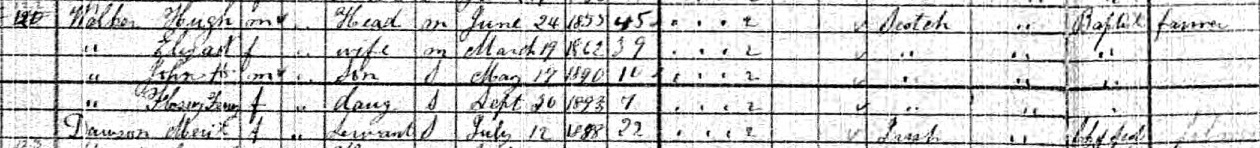 120 Walker Hugh m " Head m June 24 1855 45 2 Scotch " Baptist farmer
" f " wife m March 19 1862 39 2 " " "
" John m " Son S May 17 1890 10 2 " " "
" f " daug S Sept 30 1893 7 2 " " "
Dawson f " Servant S July 12 1888 22 2 Irish "